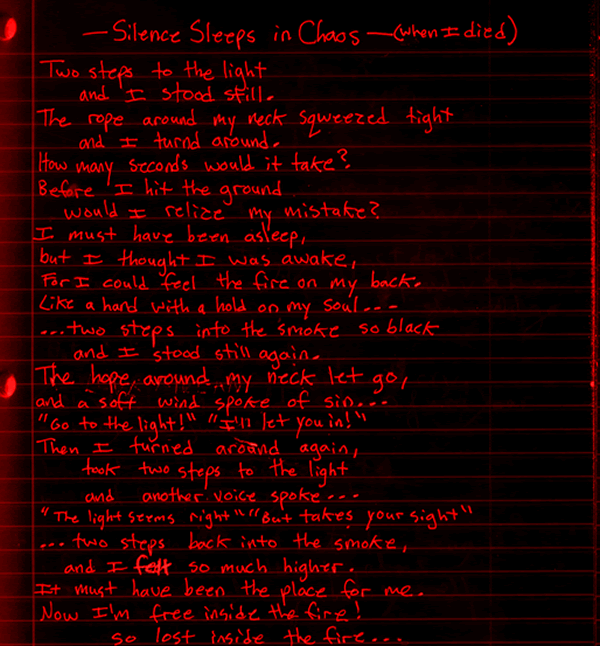 — Silence Sleeps in Chaos — (when I died)
Two steps to the light
and I stood still.
The rope around my neck sqweezed tight
and I turnd around.
How many seconds would it take?
Before I hit the ground
would I relize my mistake?
I must have been asleep,
but I thought I was awake,
For I could feel the fire on my back.
Like a hand with a hold on my soul...
...two steps into the smoke so black
and I stood still again.
The hope around my neck let go,
and a soft wind spoke of sin...
"Go to the light!" "I'll let you in!"
Then I turned around again,
took two steps to the light
and another voice spoke...
"The light seems right" "But takes your sight"
... two steps back into the smoke,
and I felt so much higher.
It must have been the place for me.
Now I'm free inside the fire!
so lost inside the fire...